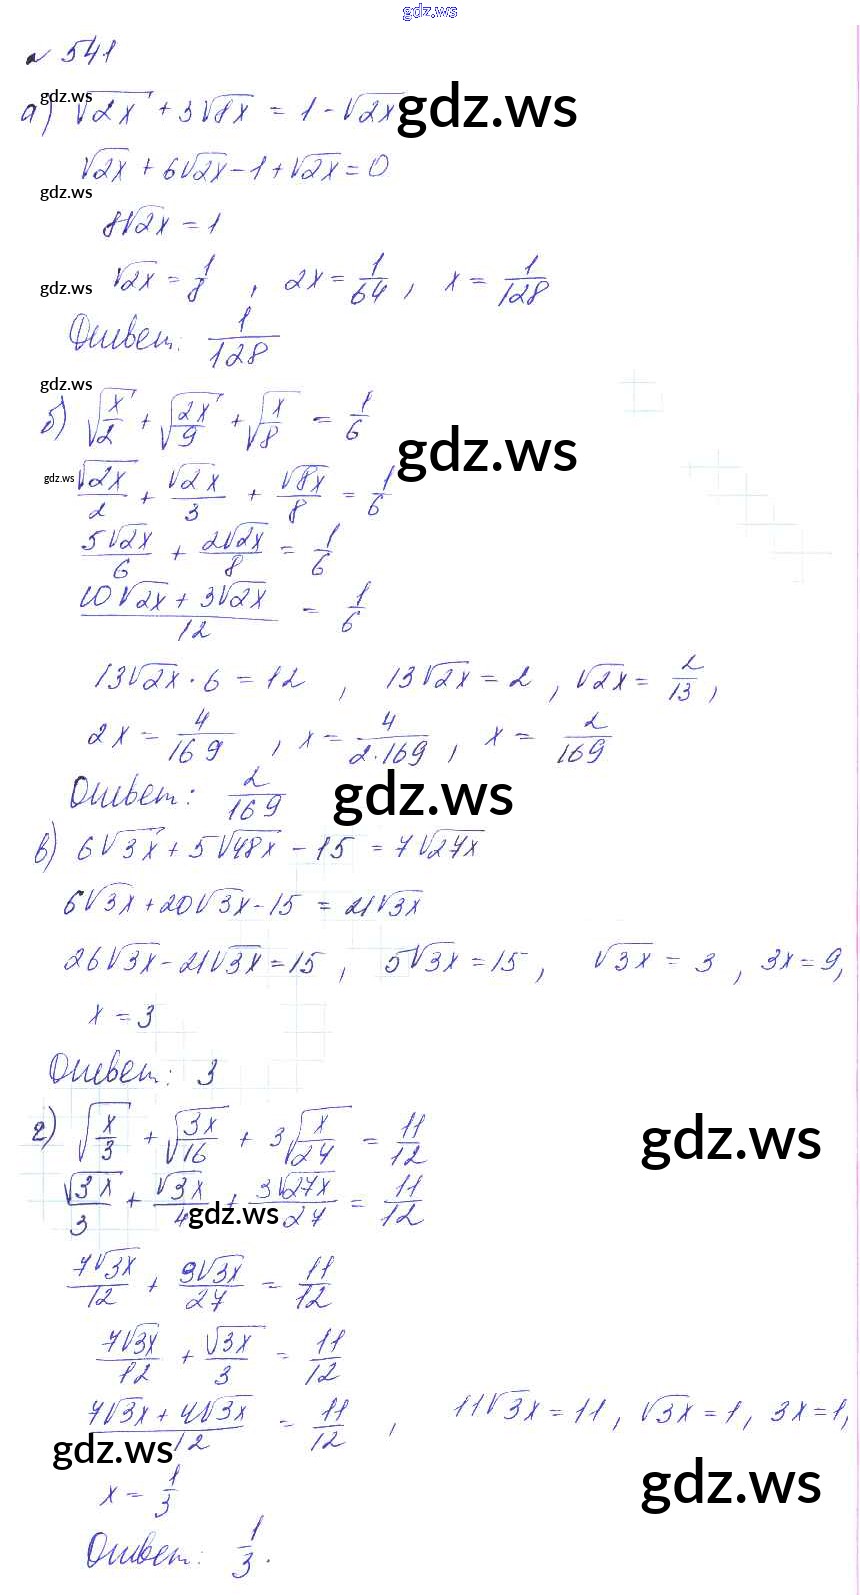 gdz.ws
№ 541
gdz.ws
а) √2x + 3√8x = 1 - √2x gdz.ws
√2x + 6√2x - 1 + √2x = 0
gdz.ws
8√2x = 1
gdz.ws √2x = 1/8 , 2x = 1/64 , x = 1/128
Ответ: 1/128
gdz.ws
б) √(x/2) + √(2x/9) + √(x/8) = 1/6
gdz.ws
gdz.ws √2x/2 + √2x/3 + √8x/8 = 1/6
5√2x/6 + 2√2x/8 = 1/6
(10√2x + 3√2x)/12 = 1/6
13√2x · 6 = 12 , 13√2x = 2 , √2x = 2/13 ,
2x = 4/169 , x = 4/(2·169) , x = 2/169
Ответ: 2/169 gdz.ws
в) 6√3x + 5√48x - 15 = 7√27x
6√3x + 20√3x - 15 = 21√3x
26√3x - 21√3x = 15 , 5√3x = 15 , √3x = 3 , 3x = 9,
x = 3
Ответ: 3
г) √(x/3) + √(3x/16) + 3√(x/27) = 11/12 gdz.ws
√3x/3 + √3x/4 + 3√27x/27 = 11/12
gdz.ws
7√3x/12 + 9√3x/27 = 11/12
7√3x/12 + √3x/3 = 11/12
(7√3x + 4√3x)/12 = 11/12 , 11√3x = 11 , √3x = 1, 3x = 1,
gdz.ws
x = 1/3 gdz.ws
Ответ: 1/3.